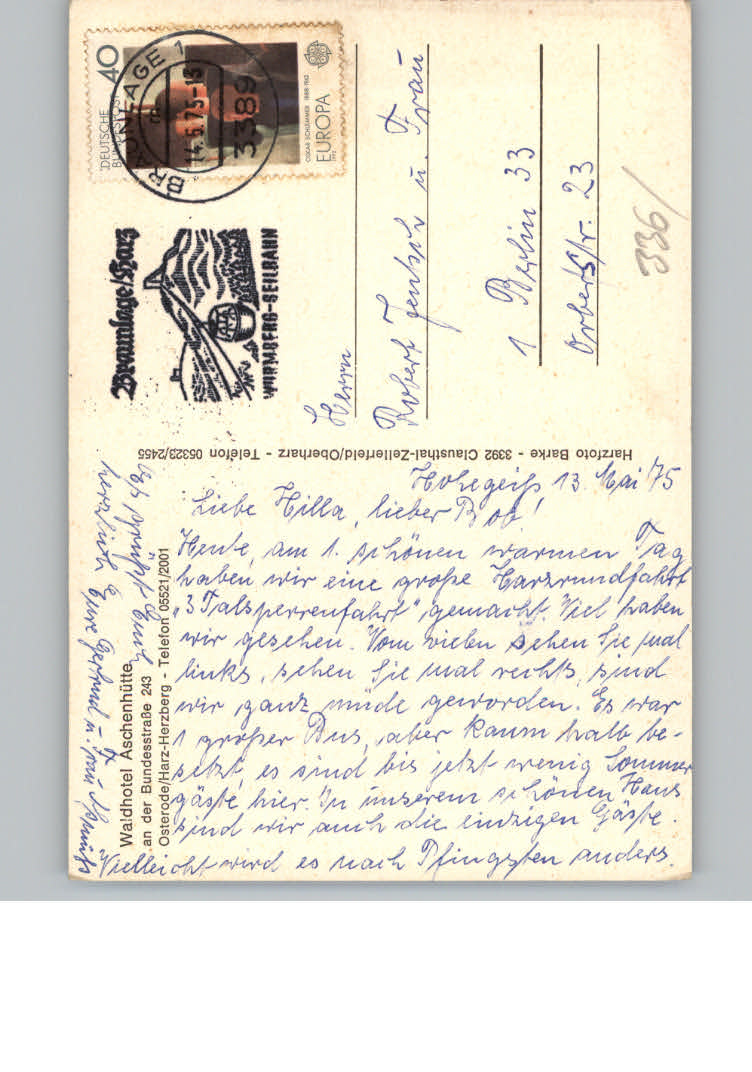 Waldhotel Aschenhütte
an der Bundesstraße 243
Osterode/Harz-Herzberg - Telefon 05521/2001
Harzfoto Barke - 3392 Clausthal-Zellerfeld/Oberharz - Telefon 05323/2455
Hohegeiß 13. Mai 75
Liebe Hilla, lieber Bob!
Heute, am 1. schönen warmen Tag
haben wir eine große Harzrundfahrt
"3 Talsperrenfahrt" gemacht. Viel haben
wir gesehen. Vom vielen sehen Sie mal
links, sehen Sie mal rechts, sind
wir ganz müde geworden. Es war
1 großer Bus, aber kaum halb be-
setzt, es sind bis jetzt wenig Sommer
gäste hier. In unserem schönen Haus
sind wir auch die einzigen Gäste.
Vielleicht wird es nach Pfingsten anders.
Es grüßt Euch
herzlich Eure Gertrud u. Frau
DEUTSCHE
BUNDESPOST
40
OSKAR SCHLEMMER 1888-1943
EUROPA
BRAUNLAGE 1
14.5.75-13
3389
Braunlage/Harz
WURMBERG-SEILBAHN
Herrn
Robert u. Frau
1 Berlin 33
Str. 23
336/